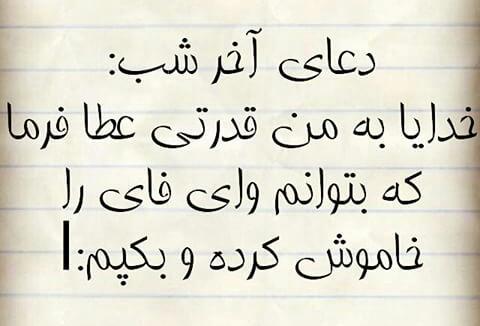 دعای آخر شب:
خدایا به من قدرتی عطا فرما
که بتوانم وای فای را
خاموش کرده و بکپم:|